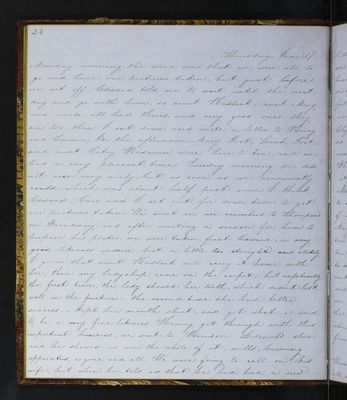 24
Thursday, June 17
Monday morning the word was that we were all to
go and have our pictures taken, but just before
we set off, Edward told me to wait until the next
day and go with him, so aunt Hidlock, aunt Mary
and uncle all had theirs, and very good ones they
are too, then I sat down and wrote a letter to Henry
and Emma. In the afternoon, Mary Root, Sarah Root,
and aunt Woodman were here to tea, and we
had a very pleasant time. Tuesday morning we did
not rise very early, but as soon as we conveniently
could, which was about half past nine I think
Edward, Cass and I set out for down town to get
our pictures taken. We went in an omnibus to Thompson
on Broadway, and after waiting a season for them to
prepare the slides, we were taken, first Edward, a very
good likeness indeed, but a little too straight and elderly
I guess that aunt Hidlock will take it home with
her, then my ladyship came on the carpet, but unfortunately
the first time, the lady showed her teeth, which didn't look
well in the picture. The second time she had better
success, kept her mouth shut, and got what is said
to be a very fine likeness. Having got through with this
important business, we went to Harrison Lidcombs store
and he showed us over the whole of it, mills, burning
apparatus, engine and all. We were going to call on his
wife, but when he told us that she had had a sick